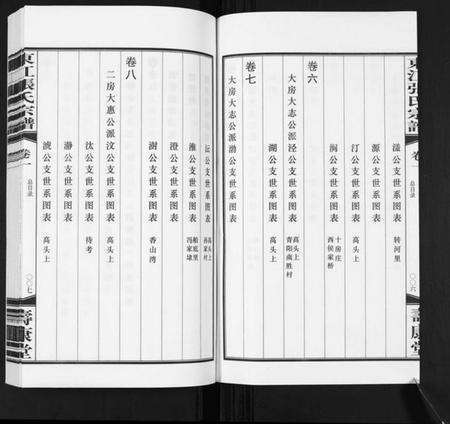 東江張氏宗譜
卷一
总目录
〇〇六
壽康堂
公支世系图表 转河里
源公支世系图表
汀公支世系图表 高头上
涧公支世系图表 十房庄 西侯家桥
卷六
大房大志公派泾公支世系图表 高头上 青阳南胜村
湖公支世系图表 高头上
卷七
大房大志公派湝公支世系图表
沄公支世系图表 高头上
淮公支世系图表 柏庄里 冯家埭
澄公支世系图表
澍公支世系图表 香山湾
卷八
二房大惠公派汶公支世系图表 高头上
汰公支世系图表 待考
瀞公支世系图表
淲公支世系图表 高头上
東江張氏宗譜
卷一
总目录
〇〇七
壽康堂